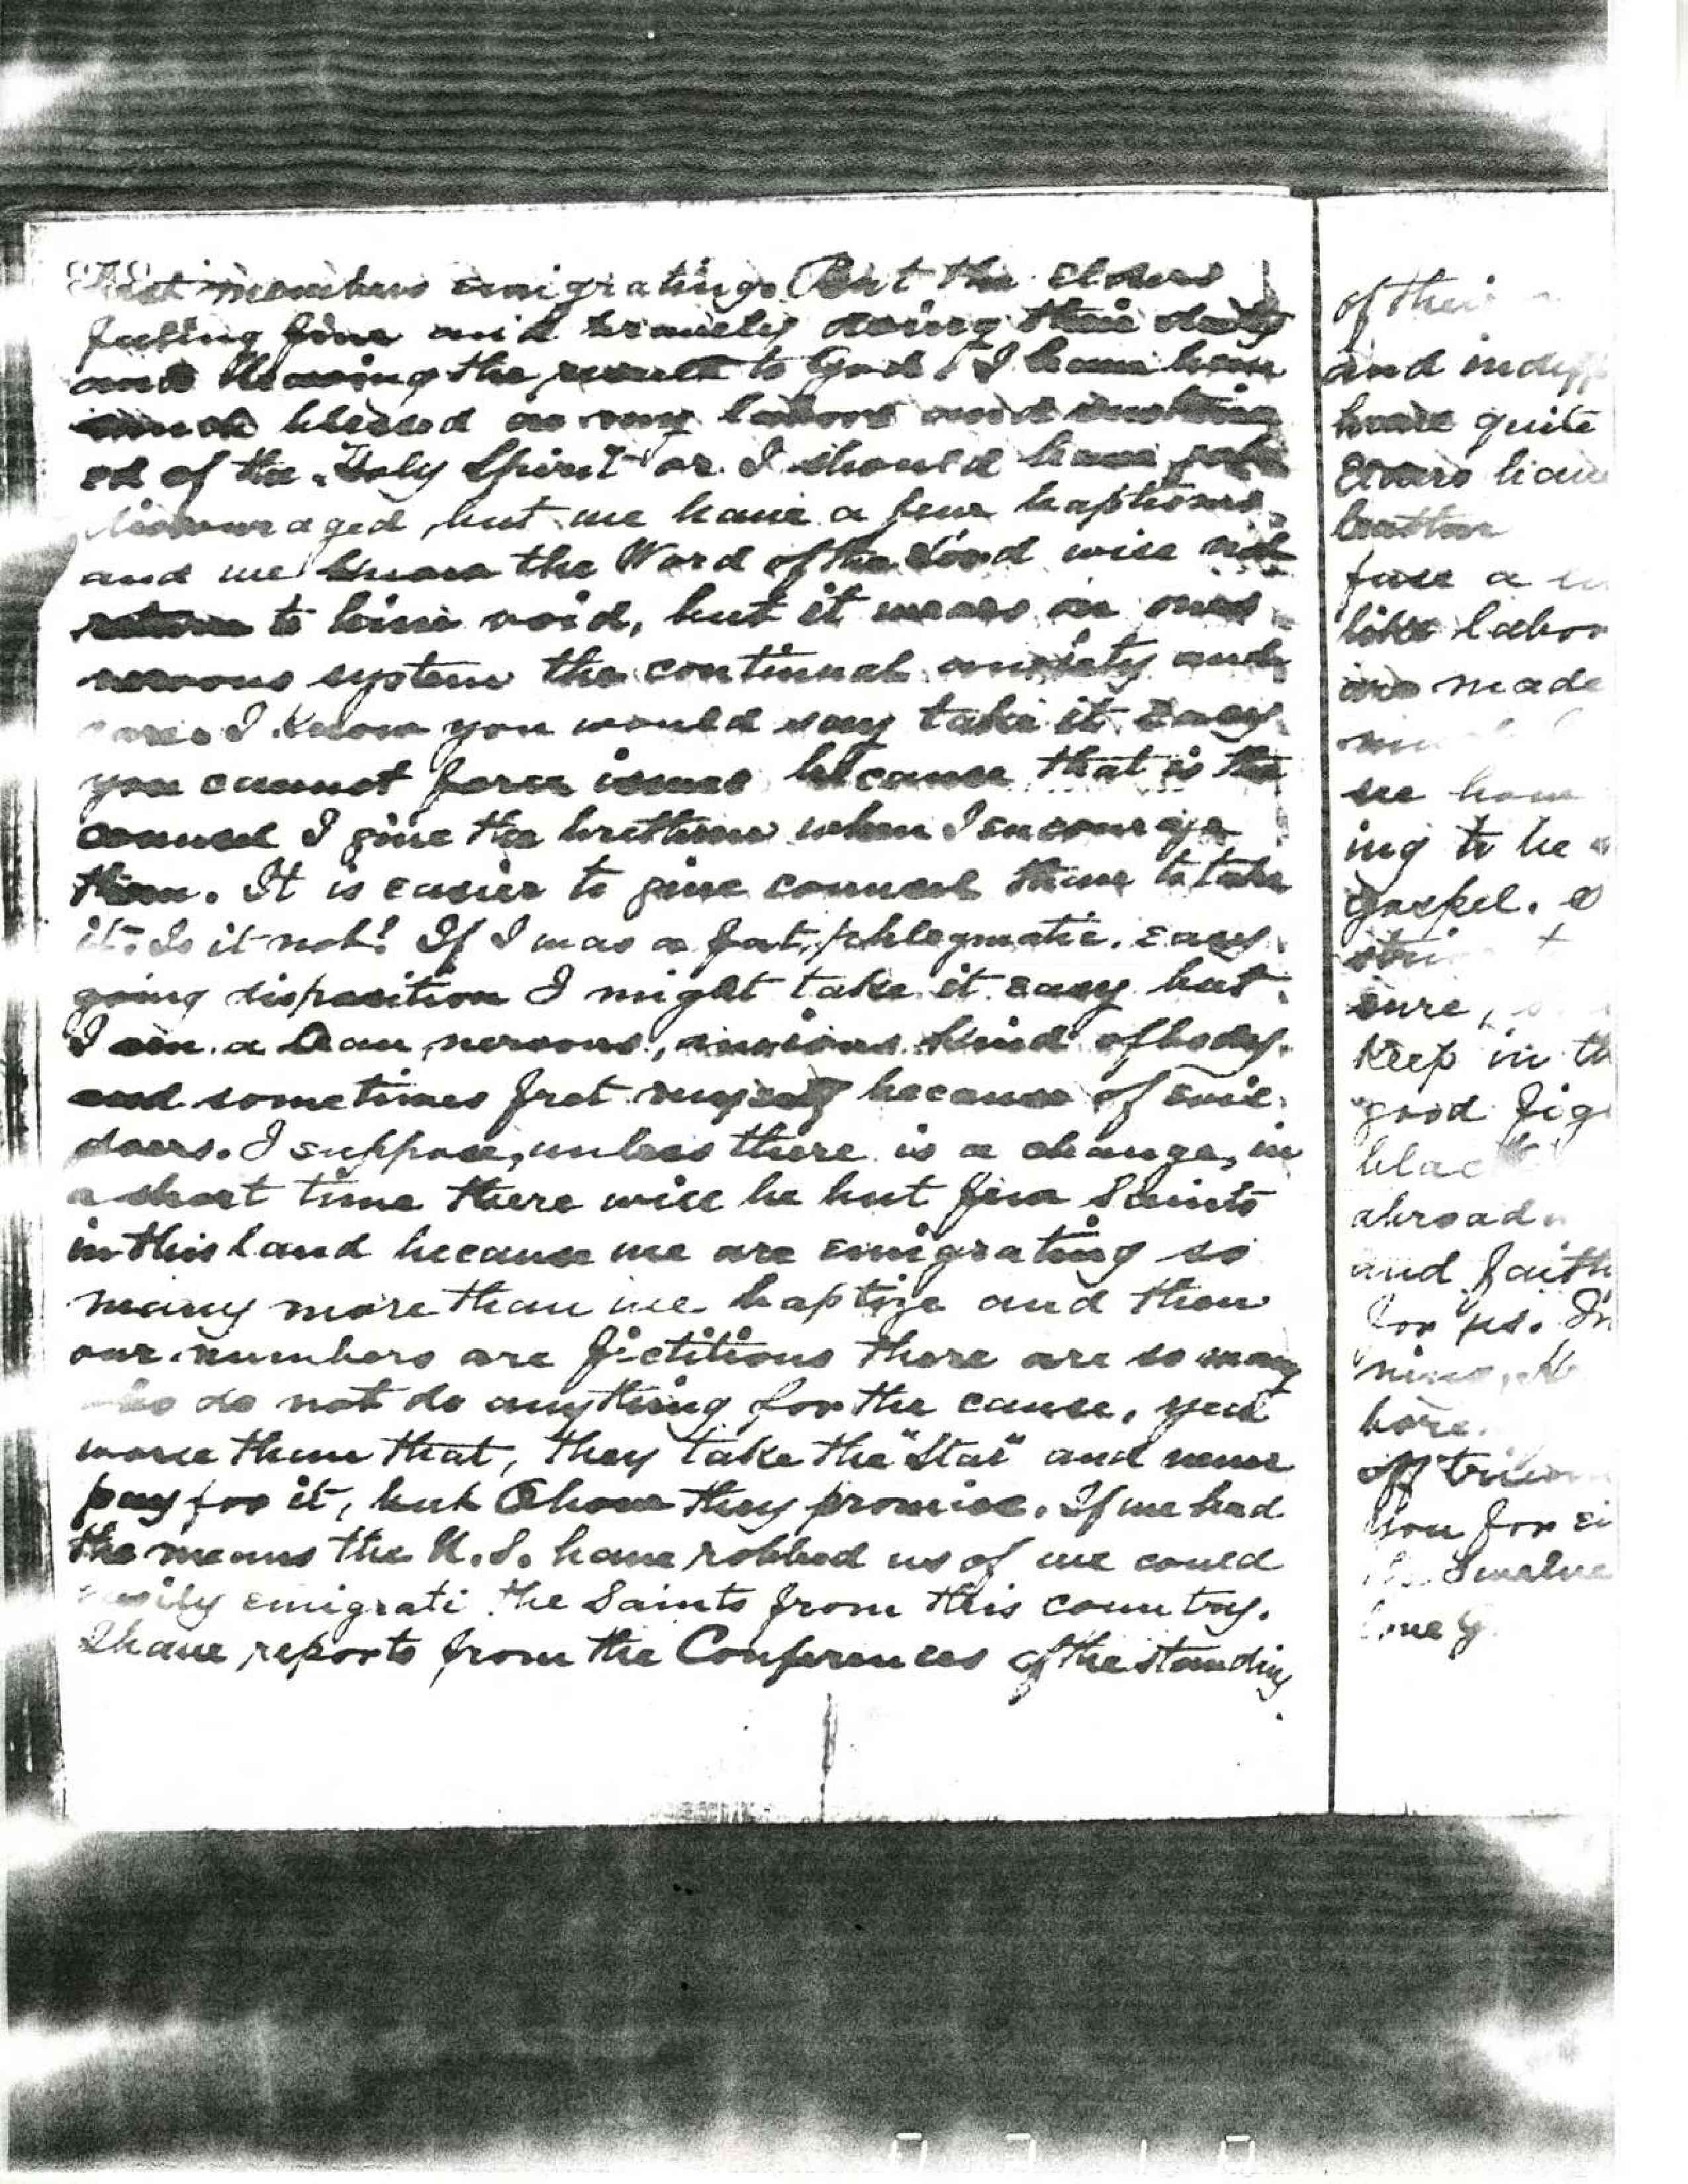 members emigrating. But the Elders
feeling fine and bravely doing their duty
and leaving the result to God. I have been
much blessed in my labors and sustain
ed of the Holy Spirit or I should have got
discouraged, but we have a few baptisms,
and we know the Word of the Lord will not
return to him void, but it wears on ones
nervous system the continual anxiety and
care. I know you would say take it easy
you cannot force issues because that is the
counsel I give the brethren when I encourage
them. It is easier to give counsel than to take
it. Is it not! If I was a fat, phlegmatic, easy
going disposition I might take it easy but
I am a lean, nervous, anxious kind of body.
and sometimes fret myself because of evil
doers. I suppose, unless there is a change, in
a short time there will be but few Saints
in this land because we are emigrating so
many more than we baptize and then
our numbers are fictitious there are so many
who do not do anything for the cause, yea
worse than that, they take the "Star" and never
pay for it, but O how they promise. If we had
the means the U.S. have robbed us of we could
easily emigrate the Saints from this country.
I have reports from the Conferences of the standing
of their
and indiff
have quite
Elders have
button
fuse a
like labor
are made
see how
ing to be
gospel.
sure,
keep in th
good fig
black
abroad
and faith
for us. In
here.
off
you for